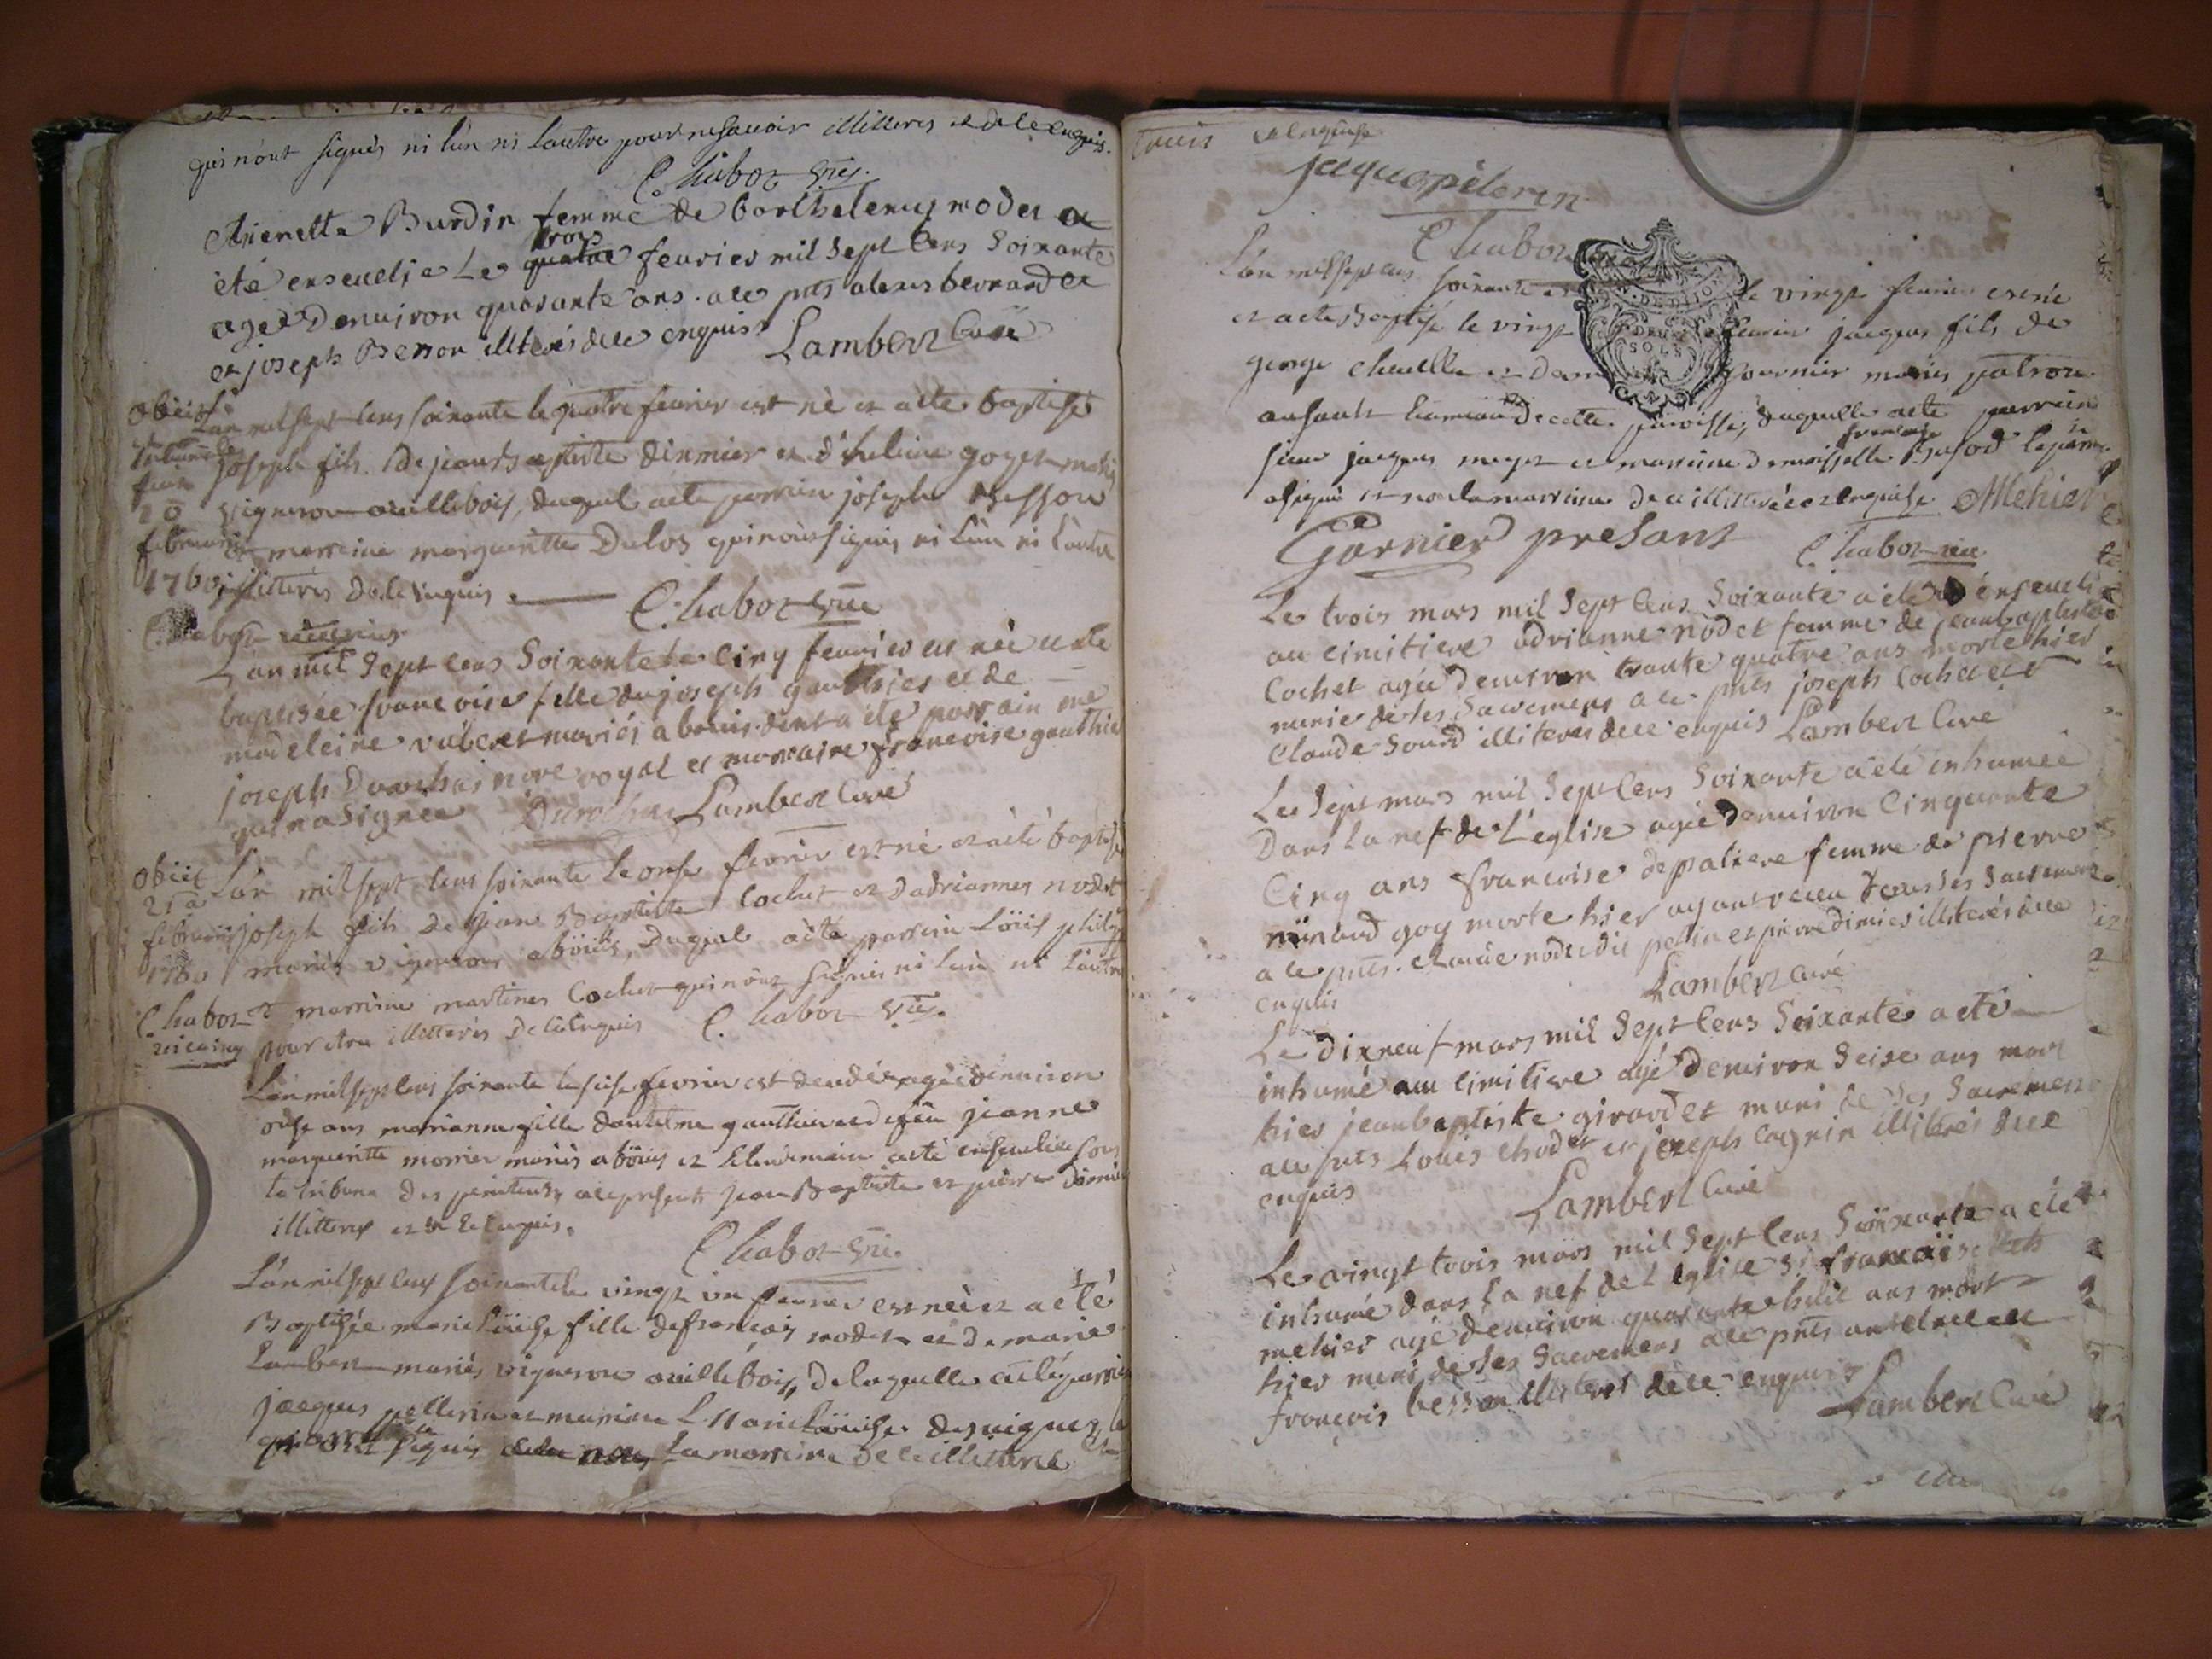 qui n'ont signés ni lun ni lautre pour ne savoir illitteres et de ce enquis.
Chabot vic.
Thienette Burdin femme de barthelemy nodet a
été enseuelie le trois feurier mil sept cens soixante
agée denuiron quarante ans. a ce pnts bernard et
et joseph Besson illiterés de ce enquis Lambert Curé
obiit
Lan mil sept cens soixante le quatre feurier est né et a été baptisé
joseph fils de jean baptiste dinmier et goyet mariés
vigneron duquel a été parrein joseph Besson
et marreine margueritte Dulos qui n'ont signés ni lun ni lautre
20
februarii
1760
illitterés de ce enquis Chabot vic
Chabot
Lan mil sept cens soixante le cinq feurier est née et a été
baptisée francoise fille de joseph gauthier et de
madeleine mariés a dont a été parrain me
joseph Durochas nore royal et marraine francoise gauthier
qui na signée Durochas Lambert Curé
obiit
21 a
februarii
1760
Chabot
Lan mil sept cens soixante le onse feurier est né et a été baptisé
joseph fils de jean Baptiste Cochet et dadrianne nodet
mariés vigneron a duquel a été parrein Loüis
et marreine martine Cochet qui n'ont signés ni lun ni lautre
pour être illitterés de ce enquis C. habot vic.
Lan mil sept cens soixante le seise feurier est decedée agée denuiron
onse ans marianne fille dantelme gauthier et de feüe jeanne
margueritte mornier mariés a et le lendemain a été enseuelie sous
la tribune des penitents a ce presents jean Baptiste et pierre dimier
illitterés et de ce enquis.
C habot vic.
Lan mil sept cens soixante le vingt un feurier est née et a été
Baptisée marie Loüise fille de françois nodet et de marie
Lambert mariés vigneron de laquelle a été parrein
jacques pellerin et marreine Marie Loüise desuignes
signés la marreine de ce illitterée
enquise
jaque pilerin
Chabot
Lan mil sept cens soixante et le vingt feurier est née
et a été baptisé le vingt feurier jacques fils de
george et Fournier mariés patron
de cette paroisse, duquel a été parrein
sieur jacques et marreine demoiselle francoise Bufod le parrein
a signé et non la marreine de ce illitterée et enquise Mehier
Garnier presant C habot vic
Le trois mars mil sept cens soixante a été enseueli
au cimitiere adrianne nodet femme de jean baptiste
Cochet agée denuiron trante quatre ans morte hier
munie de ses sacremens a ce pnts joseph Cochet et
Claude Sourd illiteres de ce enquis Lambert Curé
Le sept mars mil sept cens soixante a été inhumée
Dans la nef de L'eglise agée denuiron cinquante
cinq ans francoise depaliere femme de pierre
goy morte hier ayant receu tous ses sacremens
a ce pnts. nodet dit et pierre dimier illiterés de ce
enquis Lambert curé
Le dixneuf mars mil sept cens soixante a été
inhumé au cimitiere agé denuiron seise ans mort
hier jean baptiste girardet muni de ses sacremens
a ce pnts Louis chodet et joseph cagnin illiterés de ce
enquis Lambert Curé
Le vingt trois mars mil sept cens soixante a été
inhumé dans la nef de L eglise sr françois
mehier agé denuiron quarante huit ans mort
hier muni de ses sacremens a ce pnts antelme et
françois besson illiterés de ce enquis
Lambert Curé